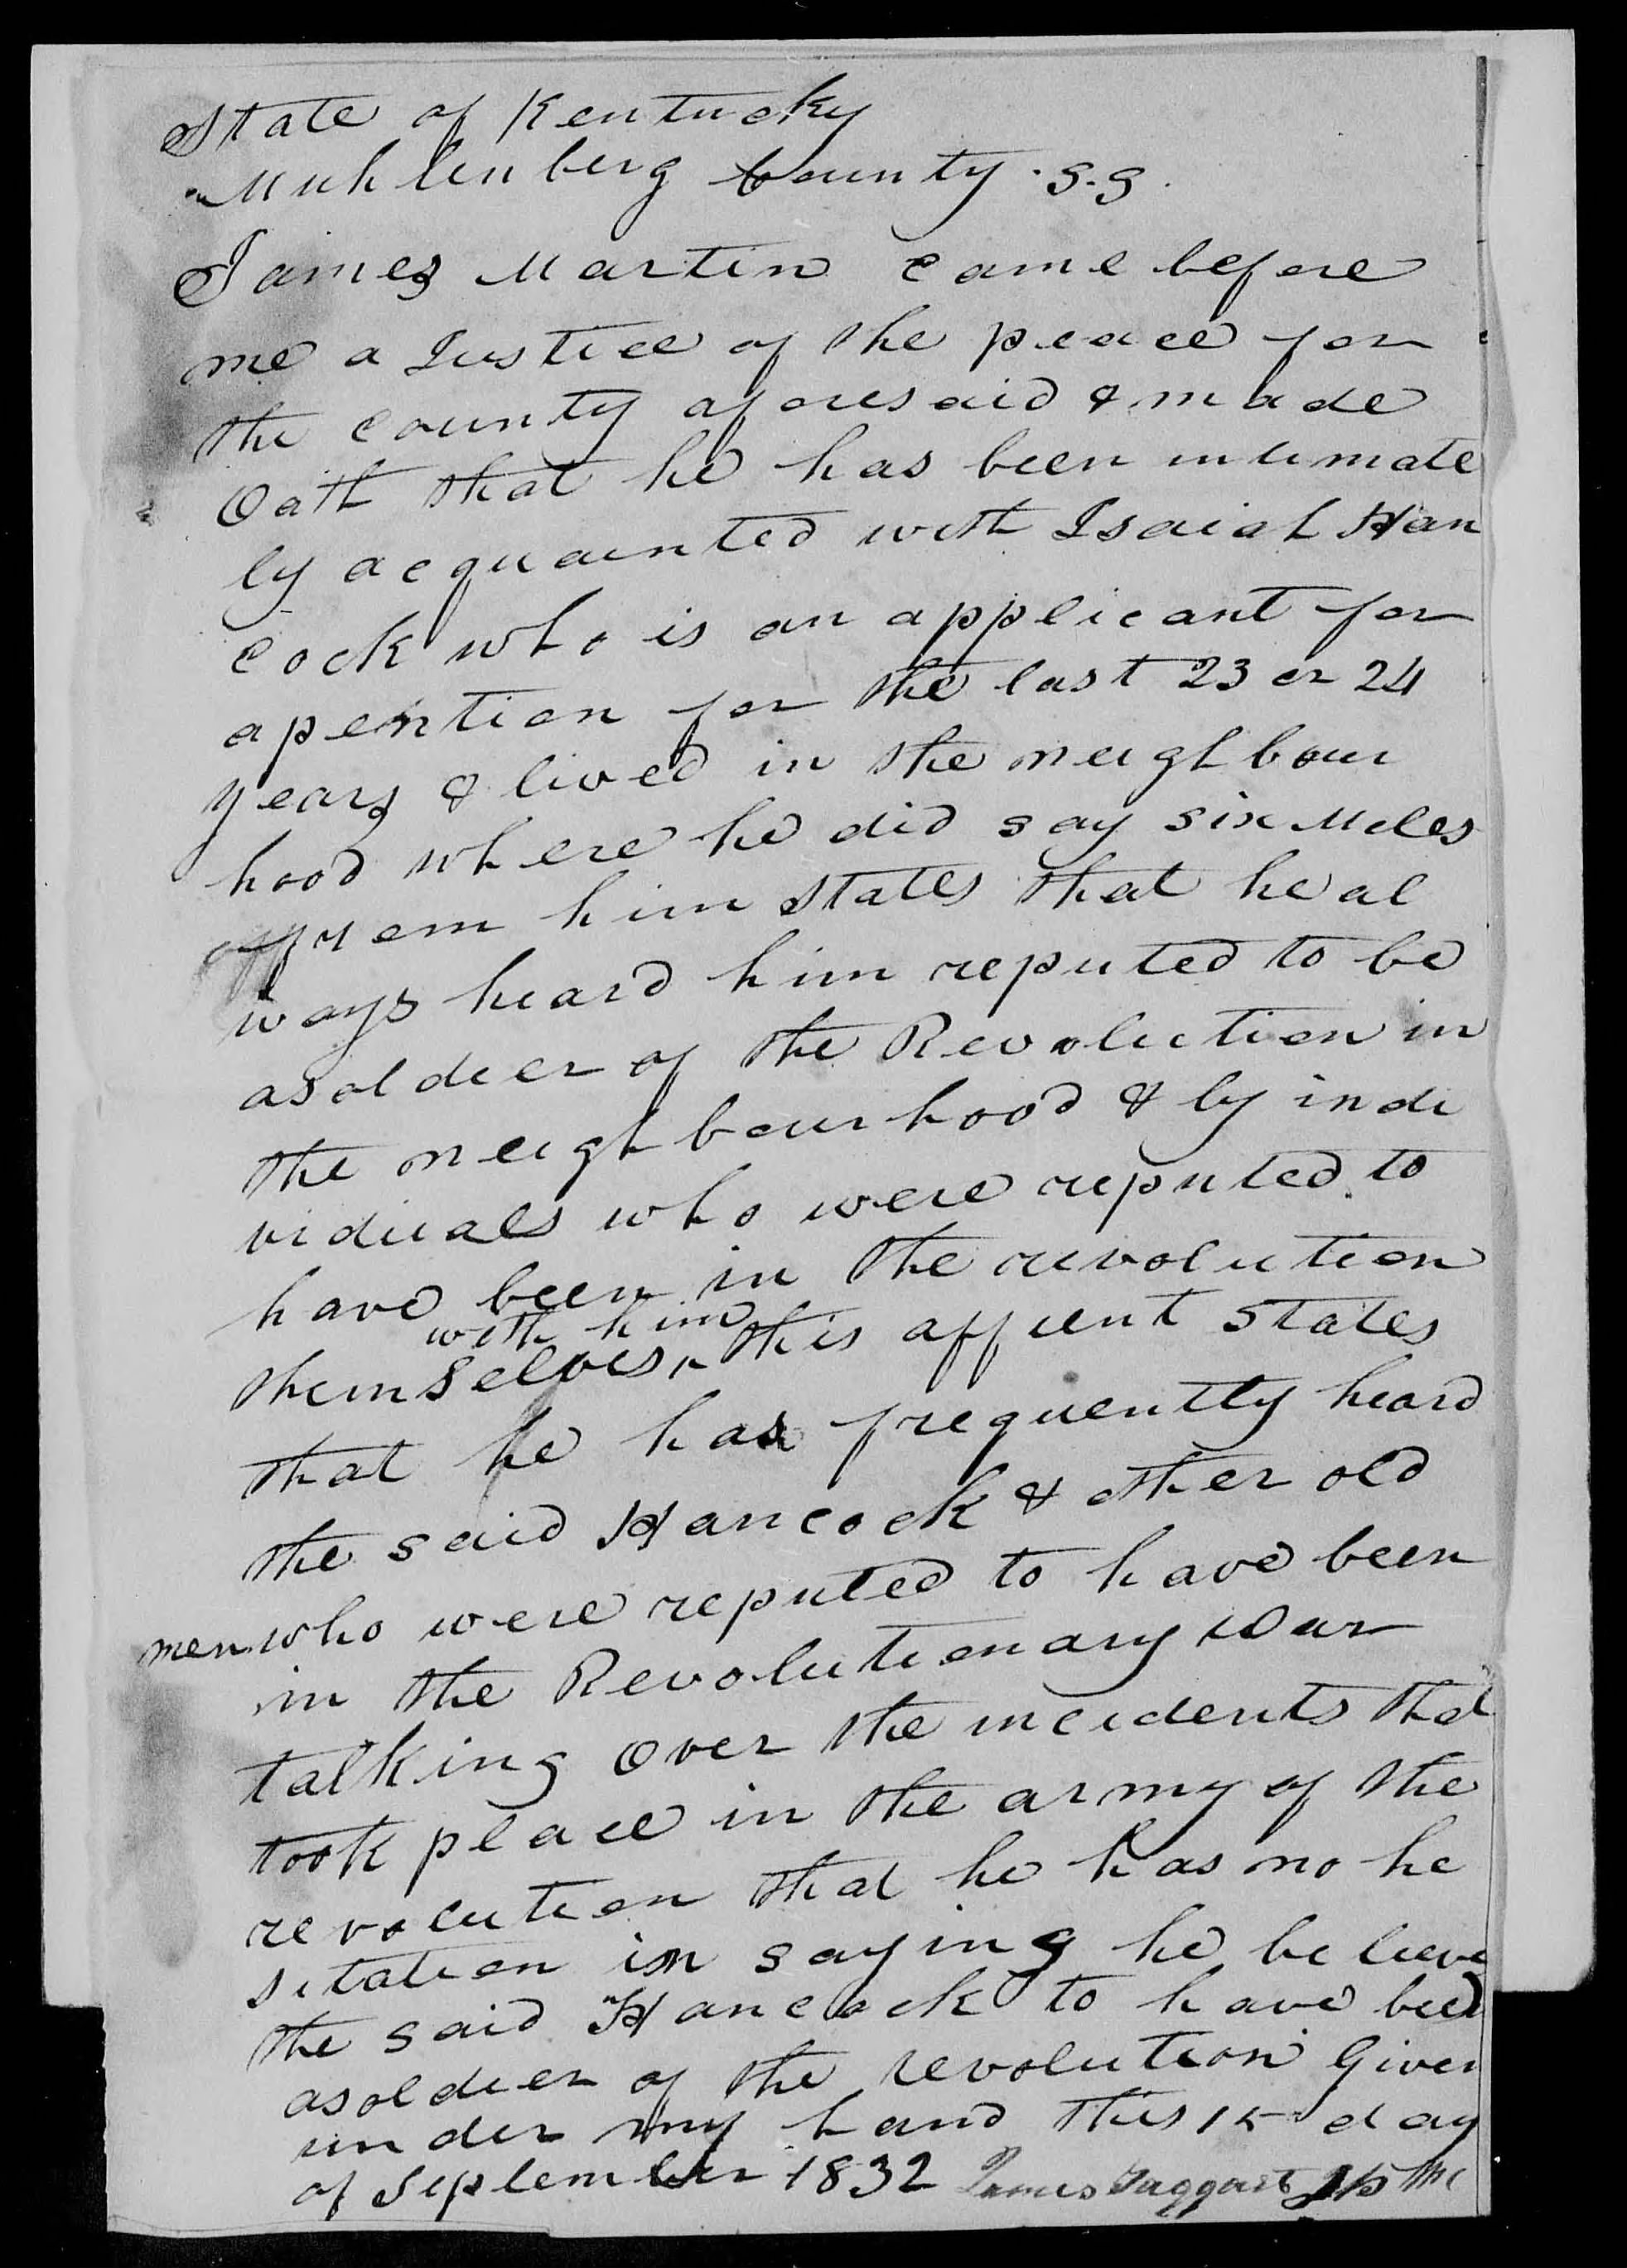 State of Kentucky
Muhlenberg County S.S.
James Martin came before
me a Justice of the peace for
the county aforesaid & made
Oath that he has been intimate
ly acquainted with Isaiah Han
cock who is an applicant for
apention for the last 23 or 24
years & lived in the neighbour
hood where he did say six Miles
from him states that he al
ways heard him reputed to be
asoldier of the Revolution in
the neighbourhood & by indi
viduals who were reputed to
have been in the revolution
with him
themselves ^ this affient States
that he has frequently heard
the said Hancock & other old
men who were reputed to have been
in the Revolutionary War
talking over the incidents that
took place in the army of the
revolution that he has no he
sitation in saying he believe
the said Hancock to have been
asoldier of the revolution Given
under my hand this 15 day
of September 1832 James Taggart JP MC